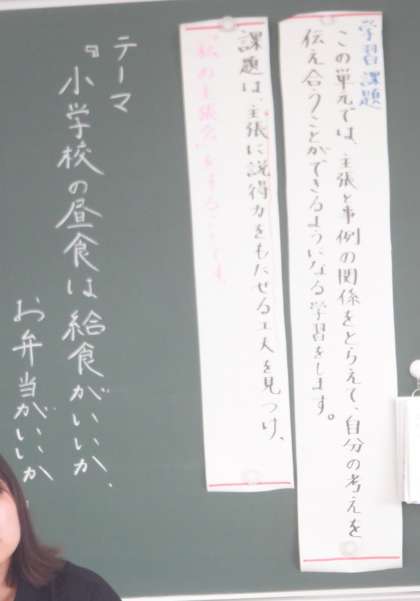 学習課題
この単元では、主張と事例の関係をとらえて、自分の考えを
伝え合うことができるようになる学習をします。
課題は、主張に説得力をもたせる工夫を見つけ、
テーマ
『小学校の昼食は給食がいいか、
お弁当がいいか